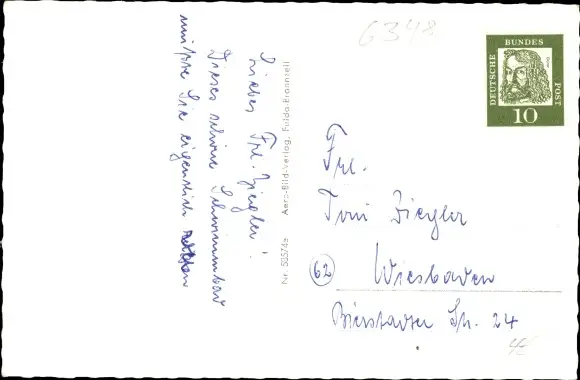 6348
DEUTSCHE
BUNDES
POST
Dürer
10
Liebes Frl. Ziegler!
Dieses schöne Schwimmbad
müsste Sie eigentlich
Aero-Bild-Verlag, Fulda-Bronnzell
Frl.
Toni Ziegler
62
Wiesbaden
Bierstadter Str. 24